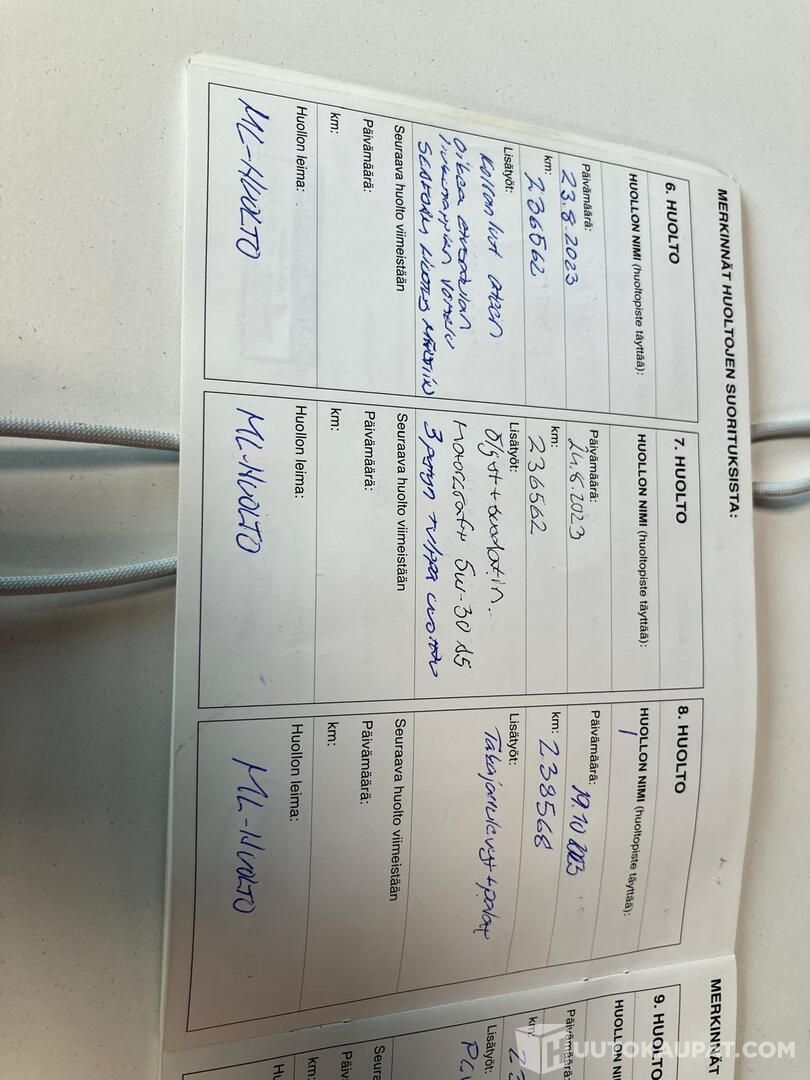 MERKINNÄT HUOLTOJEN SUORITUKSISTA:
6. HUOLTO
HUOLLON NIMI (huoltopiste täyttää):
Päivämäärä: 23.8.2023
km: 236562
Lisätyöt:
Oikea
Seuraava huolto viimeistään
Päivämäärä:
km:
Huollon leima:
ML-HUOLTO
7. HUOLTO
HUOLLON NIMI (huoltopiste täyttää):
Päivämäärä: 24.8.2023
km: 236562
Lisätyöt:
Öljyt + suodatin.
Motorcraft 5W-30 A5
3
Seuraava huolto viimeistään
Päivämäärä:
km:
Huollon leima:
ML-HUOLTO
8. HUOLTO
HUOLLON NIMI (huoltopiste täyttää):
Päivämäärä: 19.10 2023
km: 238568
Lisätyöt:
Takajarrulevyt + palat
Seuraava huolto viimeistään
Päivämäärä:
km:
Huollon leima:
ML-HUOLTO
MERKINNÄT
9. HUOLTO
HUOLLON NI
Päivämäärä:
km: 23
Lisätyöt:
Seura
Päivä
km:
Hu
HUUTOKAUPAT.COM